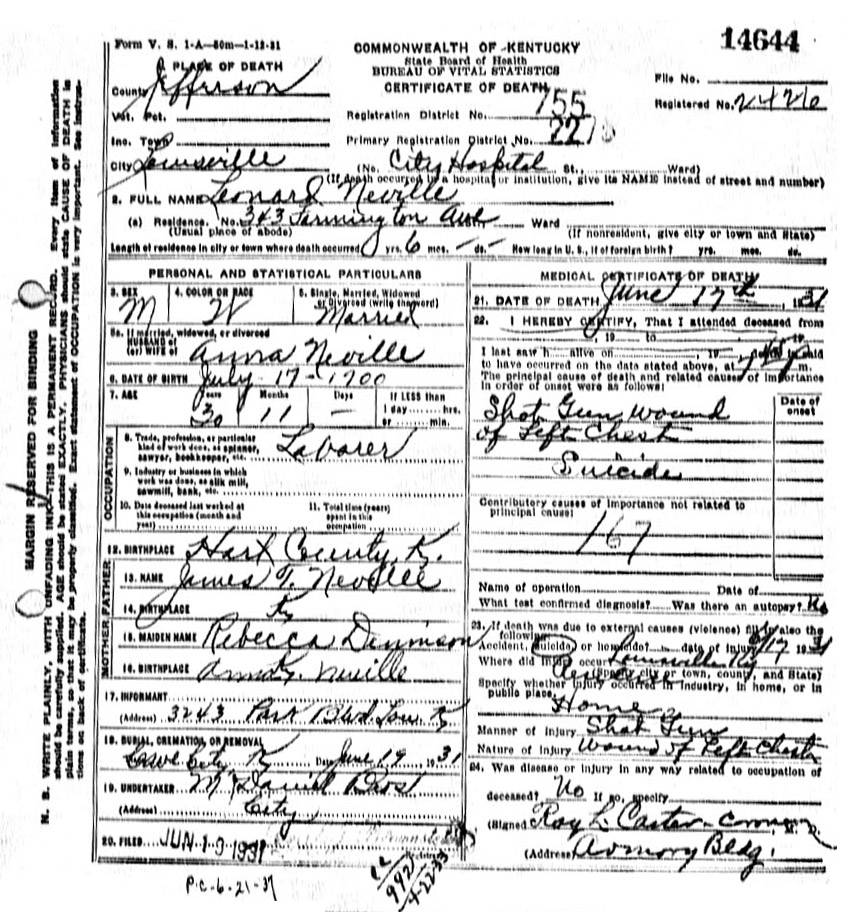 Form V. S. 1-A—50m—1-12-31
14644
COMMONWEALTH OF KENTUCKY
State Board of Health
BUREAU OF VITAL STATISTICS
CERTIFICATE OF DEATH
1 PLACE OF DEATH
County Jefferson
Vot. Pct.
Inc. Town
City Louisville
Registration District No. 755
Primary Registration District No.
File No.
Registered No.
(No. City Hospital St., Ward)
(If death occurred in a hospital or institution, give its NAME instead of street and number)
2. FULL NAME Leonard Neville
(a) Residence. No. Farmington Ave Ward
(Usual place of abode)
(If nonresident, give city or town and State)
Length of residence in city or town where death occurred yrs. 6 mos. — ds. How long in U. S., if of foreign birth? yrs. mos. ds.
PERSONAL AND STATISTICAL PARTICULARS
3. SEX M
4. COLOR OR RACE W
5. Single, Married, Widowed or Divorced (write the word) Married
5a. If married, widowed, or divorced
HUSBAND of
(or) WIFE of Anna Neville
6. DATE OF BIRTH July 17-1900
7. AGE Years 30 Months 11 Days —
If LESS than
1 day........hrs.
or........min.
OCCUPATION
8. Trade, profession, or particular kind of work done, as spinner, sawyer, bookkeeper, etc. Laborer
9. Industry or business in which work was done, as silk mill, sawmill, bank, etc.
10. Date deceased last worked at this occupation (month and year)
11. Total time (years) spent in this occupation
12. BIRTHPLACE Hart County Ky.
FATHER
13. NAME James T. Neville
14. BIRTHPLACE Ky
MOTHER
15. MAIDEN NAME Rebecca Dennison
16. BIRTHPLACE Neville
17. INFORMANT
(Address) 3243 Park Blvd. Lou. Ky
18. BURIAL, CREMATION, OR REMOVAL
Cave City Ky Date June 19 1931
19. UNDERTAKER McDaniel Bros
(Address) City
20. FILED JUN 19 1931
Registrar
MEDICAL CERTIFICATE OF DEATH
21. DATE OF DEATH June 17th, 1931
22. I HEREBY CERTIFY, That I attended deceased from
, 19 to , 19
I last saw h alive on , 19 , death is said
to have occurred on the date stated above, at m.
The principal cause of death and related causes of importance
in order of onset were as follows:
Date of onset
Shot Gun wound
of Left Chest
Suicide
Contributory causes of importance not related to
principal cause:
167
Name of operation Date of
What test confirmed diagnosis? Was there an autopsy? No
23. If death was due to external causes (violence) fill in also the
following:
Accident, suicide, or homicide? date of injury 6/17 1931
Where did injury occur Louisville Ky
(Specify city or town, county, and State)
Specify whether injury occurred in industry, in home, or in
public place.
Home
Manner of Injury Shot Gun
Nature of Injury Wound of Left Chest
24. Was disease or injury in any way related to occupation of
deceased? No If so, specify
(Signed) Roy L. Carter - Coroner
(Address) Armory Bldg.
P.C-6-21-37
4-22-33
MARGIN RESERVED FOR BINDING
N. B. WRITE PLAINLY, WITH UNFADING INK—THIS IS A PERMANENT RECORD. Every item of information
should be carefully supplied. AGE should be stated EXACTLY. PHYSICIANS should state CAUSE OF DEATH in
plain terms, so that it may be properly classified. Exact statement of OCCUPATION is very important. See instructions
on back of certificate.